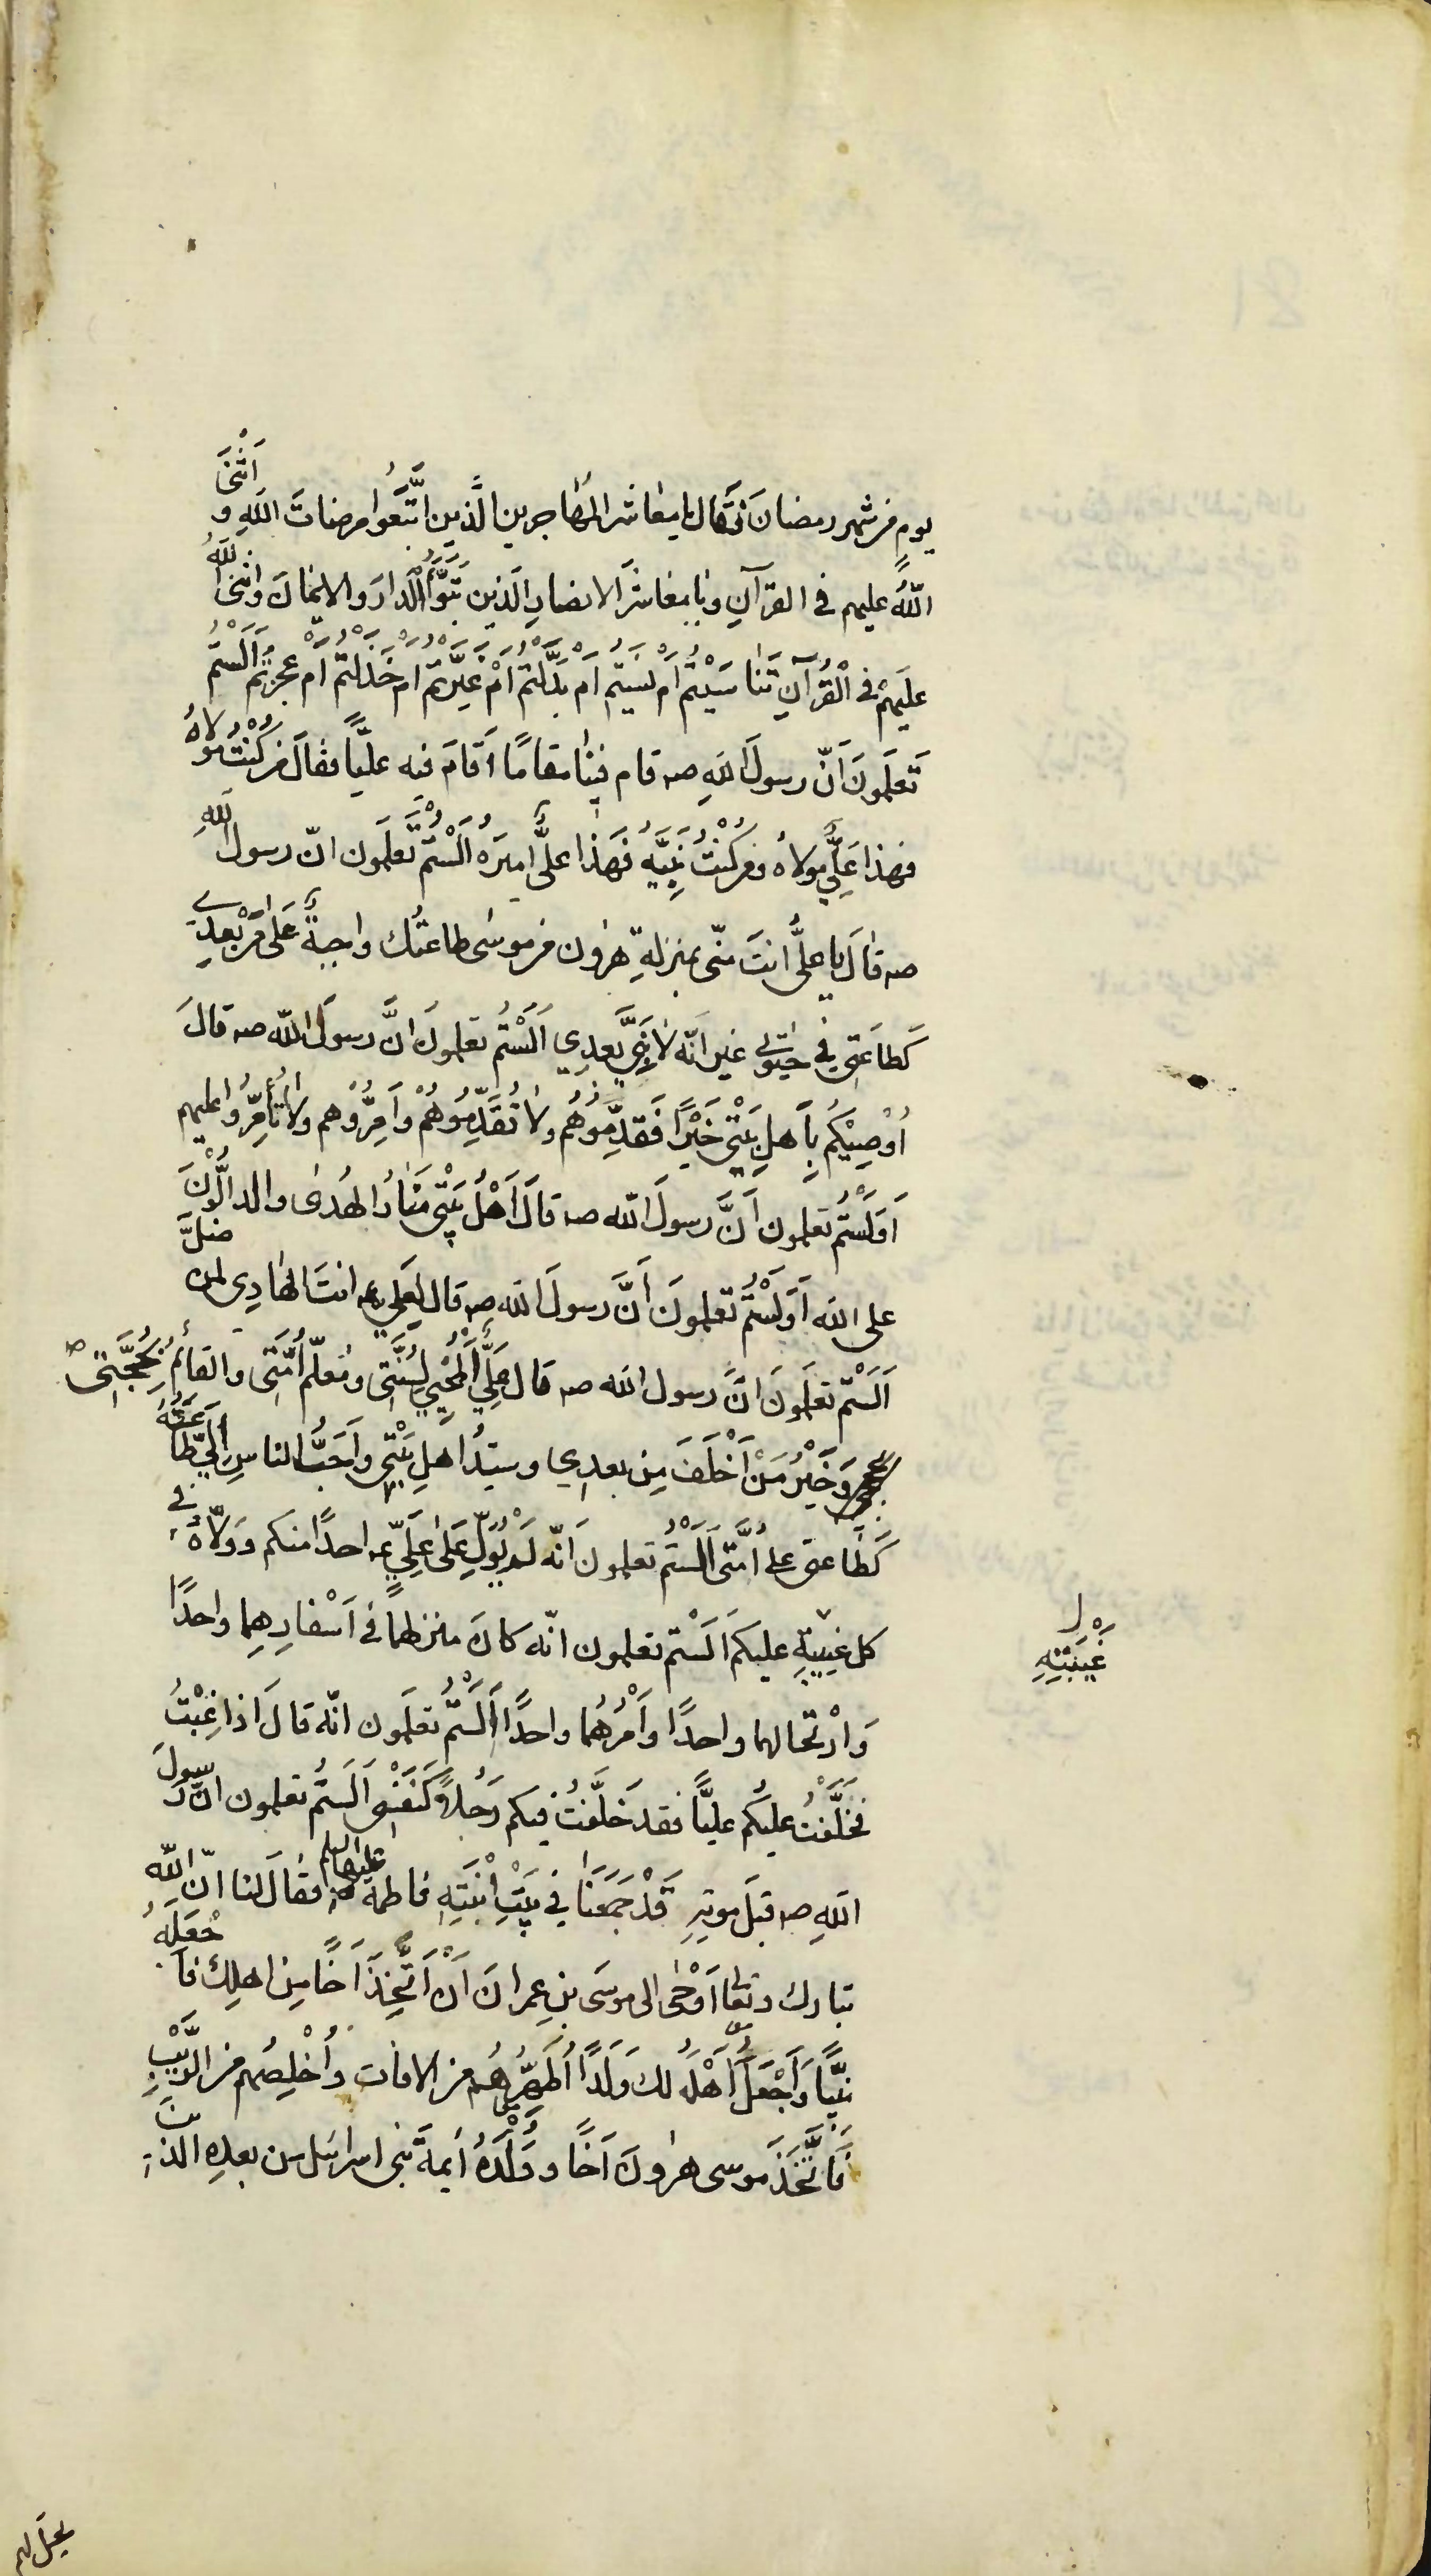 يوم من شهر رمضانَ فَقال يا معاشر المهاجرين الَّذين اتَّبَعُوا مرضات اللهِ و اَثْنَى
اللهُ عليهم في القرآنِ و يا معاشرَ الانصارِ الّذين تَبَوَّأُ الدارَ و الايمانَ واثنى اللهُ
عليهمْ في الْقُرآنِ تَناسَيْتُم اَمْ نَسيتُم اَمْ بَدَّلْتُمْ اَمْ غَيَّرْتُم اَمْ خَذَلْتُمْ اَمْ عجزتُم اَلَسْتُم
تَعلَمونَ اَنّ رسولَ اللهِ صـ قام فينا مقامًا اَقامَ فيه عليًّا فقالَ من كُنْتُ مَولاهُ
فهذا عَلِيٌّ مولاه ومن كُنْتُ نَبِيَّهُ فَهَذا عليٌّ اميرُهُ اَلَسْتُم تَعلَمون انّ رسول اللهِ
صـ قالَ يا عليُّ انتَ منّي بمنزلةِ هرٰون من موسى طاعتُك واجبةٌ عَلى مَنْ بَعدِي
كَطاعَتِي في حيٰوتي غير انّه لا نَبِيَّ بَعدِي اَلَسْتُم تعلمونَ انَّ رسولَ اللّه صـ قالَ
اُوْصِيْكُم بِاَهلِ بَيْتِي خَيْرًا فَقَدِّمُوهُم ولا تُقَدِّمُوهُمْ وَاَمِّرُوْهم ولا تُأَمِّرُوا عليهم
اَوَلَسْتُم تعلمون اَنَّ رسولَ الله صـ قالَ اَهْلُ بَيْتي مَنارُ الهُدى والدالُّوْنَ
على الله اَوَلَسْتُم تعلمونَ اَنَّ رسولَ الله صـ قالَ لِعَليٍّ عـ انتَ الهادِي لمن ضلَّ
اَلَسْتُم تعلَمونَ انَّ رسول الله صـ قال عَلِيٌّ اَلْمُحْيِي لِسُنَّتِي ومُعلّم اُمَّتي والقائمُ بِحُجَّتِي صـ
وَخَيْرُ مَنْ اَخْلَفَ مِن بعدِي وسيّدُ اهلِ بَيْتِي واَحَبُّ الناسِ اِلَيَّ طاعَتُهُ
كَطاعتي على اُمَّتي اَلَسْتُم تعلمون اَنّه لَمْ يُوَلِّ عَلى عَلِيٍّ عـ احدًا منكم وَوَلّاهُ في
كل غيبةٍ عليكم اَلَسْتم تعلمون انّه كانَ منزلهما في اَسْفارِهِما واحدًا
غَيْبَتِهِ ل
وَارْتحالهما واحدًا وَاَمْرُهُما واحدًا اَلَسْتُم تعلَمون انّه قالَ اذا غِبْتُ
فَخَلَّفْتُ عليكُم عليًّا فقد خَلَّفْتُ فيكم رَجُلًا كَنَفْسِي اَلَستُم تعلمون انّ رَسولَ
اللهِ صـ قبَل موتِهِ قَدْ جَمَعَنا في بَيْتِ ابْنَتِهِ فاطمة عليهاالسلم فقالَ لنا انّ اللّه
تبارك وتعالى اَوْحٰى الى موسَى بن عِمرانَ اَنْ اتَّخِذْ اَخًا مِن اهلِك فاَجْعَلَهُ
نبيًّا وَاَجْعَلَ اَهْلَهُ لكَ وَلَدًا اُطَهِّرُهُم من الافات واُخْلِصُهم من الرَّيْبِ
فَاتَّخَذَ موسى هٰرونَ اَخًا و وُلْدَهُ اَيمةً لبني اسرائيل من بعدِهِ الذين
يحل لهم